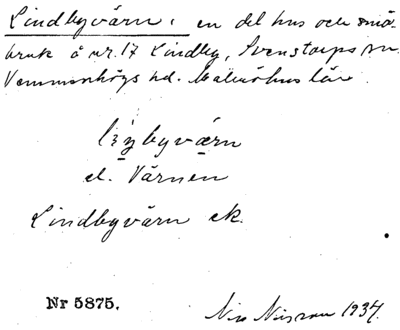 Lindbyvärn: en del hus och små-
bruk å nr. 17 Lindby, Svenstorps sn.
Vemmenhögs hd. Malmöhus län.
byvärn
el. Värnen
Lindbyvärn ek.
Nr 5875.
Nils Nilsson 1937.